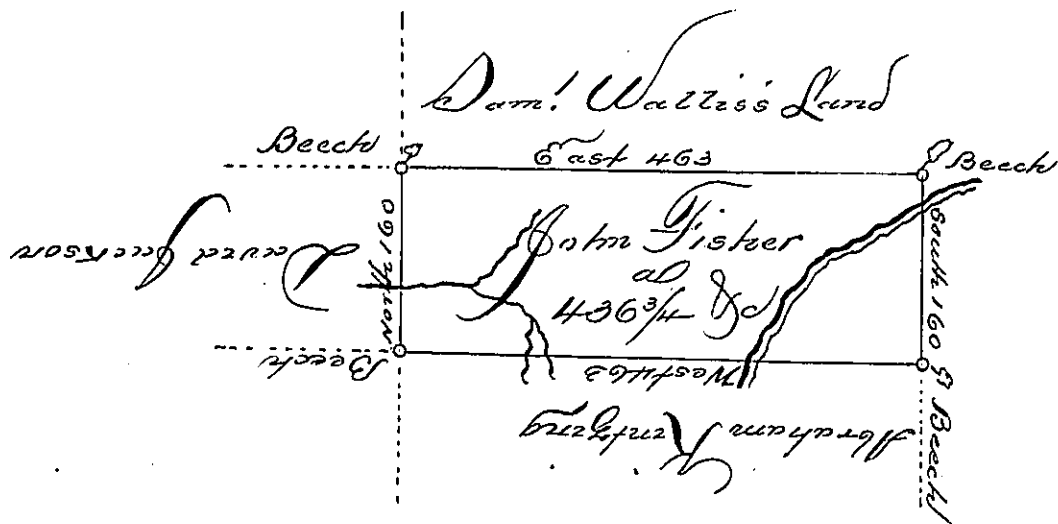 Sam! Wallis's Land
Beech
East 463
Beech
David Jackson
North 160
John Fisher
a
436 3/4 &c
South 160
Beech
West 463
Beech
Abraham